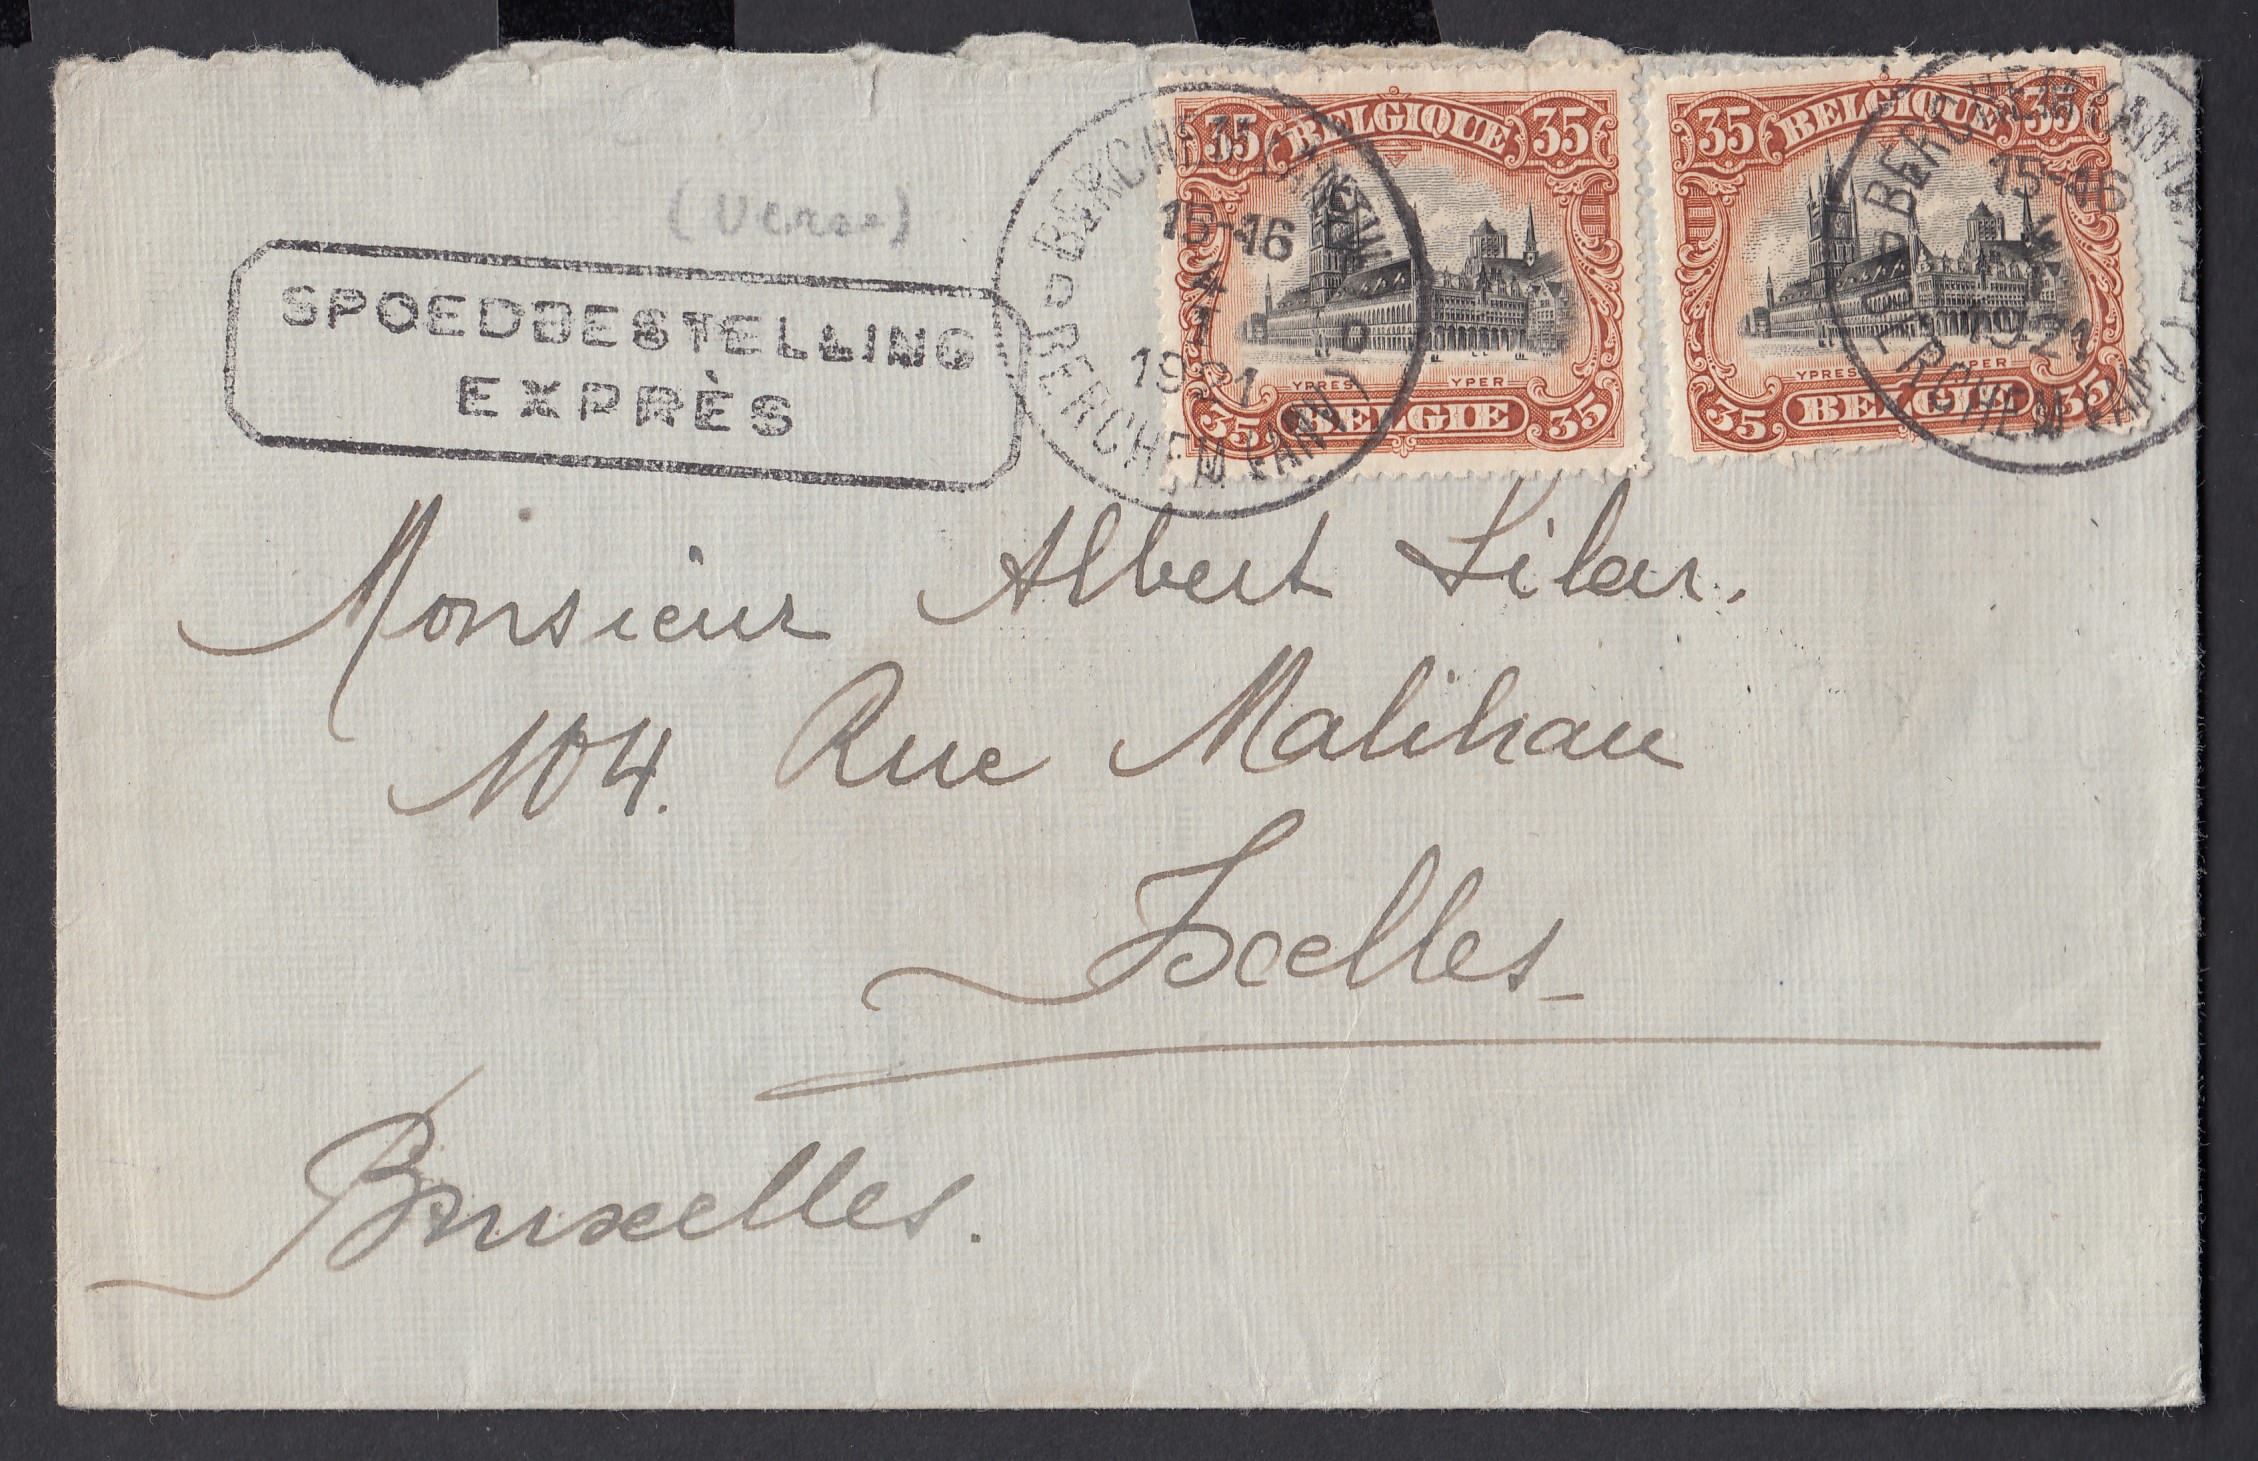 (Verso)
SPOEDBESTELLING
EXPRÈS
BERCHEM (ANTW.)
15-16
4
1
1921
D D
BERCHEM (ANV.)
35 BELGIQUE 35
YPRES YPER
35 BELGIE 35
35 BELGIQUE 35
YPRES YPER
35 BELGIE 35
BERCHEM (ANTW.)
15-16
4
1921
BERCHEM (ANV.)
Monsieur Albert Lilar.
104. Rue Malibran
Ixelles
Bruxelles.